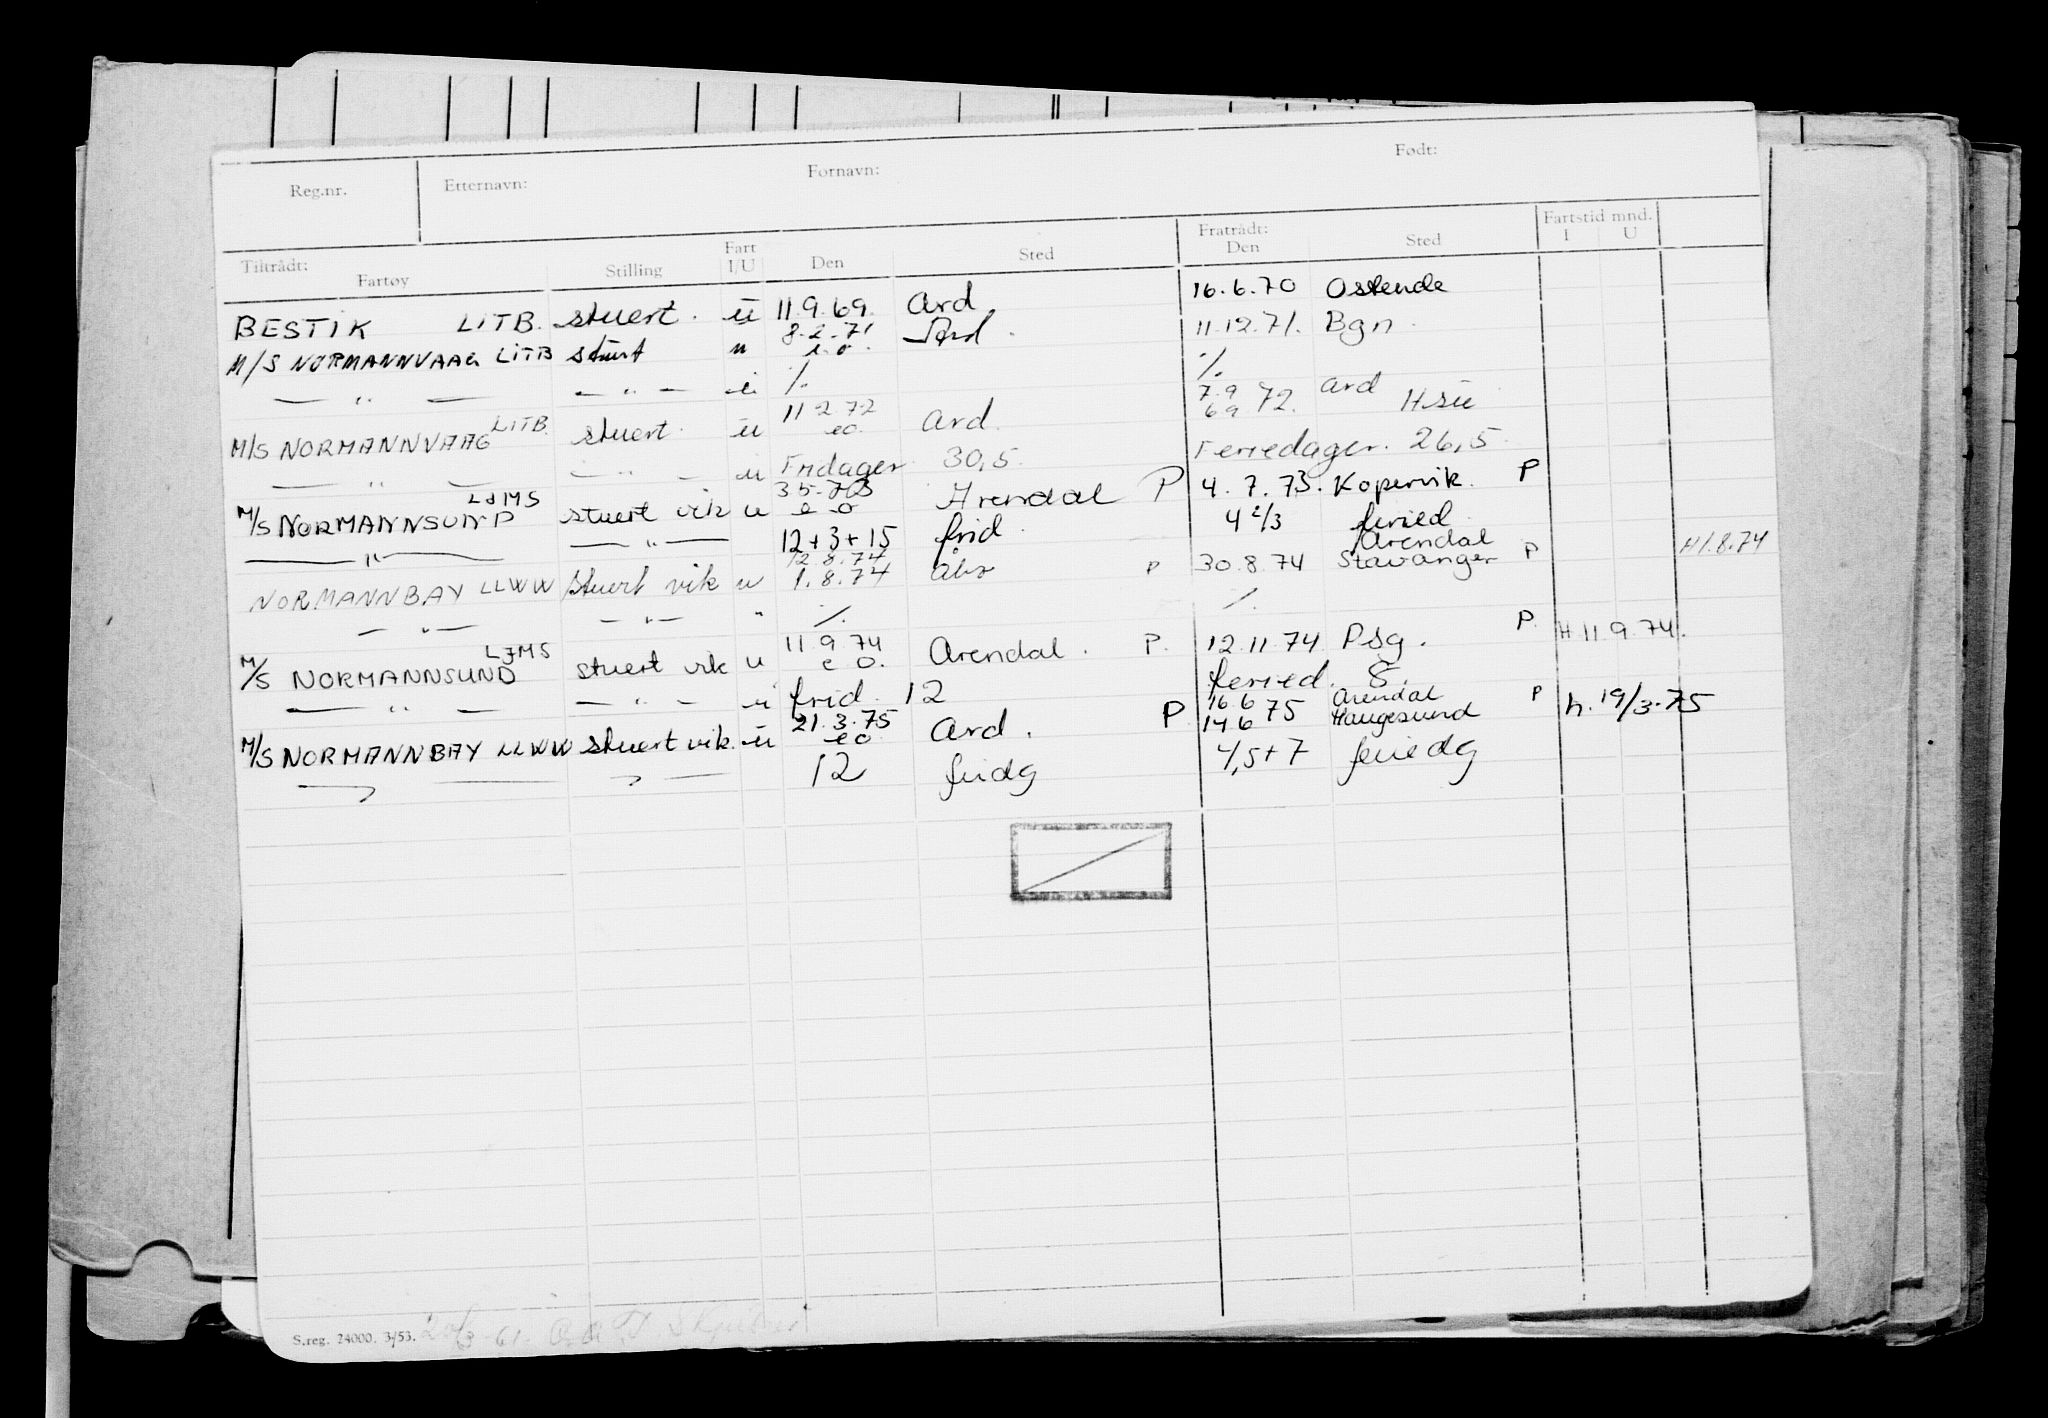 Reg.nr. Etternavn: Fornavn: Født:
Tiltrådt: Fartøy Stilling Fart I/U Den Sted Fratrådt: Den Sted Fartstid mnd. I U
BESTIK LITB. stuert. ü 11.9.69. Ard 16.6.70 Ostende
M/S NORMANNVAAG LITB stuert u 8.2.71 e.o. Ard. 11.12.71. Bgn.
— " — — " — ü ·/. ·/.
M/S NORMANNVAAG LITB. stuert. ü 11.2.72 eo. Ard. 7.9 6.9 72. Ard Hsü
— " — — " — ü Fridager 30,5. Feriedager. 26,5.
M/S NORMANNSUND LJMS stuert vik u 3.5.73 e o Arendal P 4.7.73. Kopervik. P
— " — — " — 12+3+15 frid. 4 2/3 feried.
NORMANNBAY LLWW stuert vik u 12.8.74 1.8.74 Åbo P 30.8.74 Arendal Stavanger P H1.8.74
— " — — " — " ·/. ·/.
M/S NORMANNSUND LJMS stuert vik u 11.9.74 e o. Arendal. P. 12.11.74 Psg. P. H 11.9.74.
— " — — " — ü frid. 12 feried. 8.
M/S NORMANNBAY LLWW stuert vik. ü 21.3.75 eo Ard. P 16.6 14.6 75 Arendal Haugesund P h. 19/3-75
— " — — " — 12 fridg 4,5+7 feriedg
S.reg. 24000. 3/53.